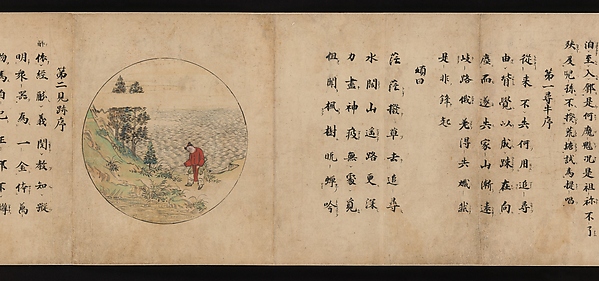 泊至入鄽是何魔魅況是祖祢不了
殃及児孫不揆荒塘試為提唱
第一尋牛序
從来不失何用追尋
由背覺以成踈在向
塵而遂失家山漸遠
岐路俄差得失熾然
是非鋒起
頌曰
茫茫撥草去追尋
水闊山遥路更深
力盡神疲無處覓
但聞楓樹晩蟬吟
第二見跡序
依經解義閲教知蹤
明衆器為一金体萬
物為自己正邪不辨